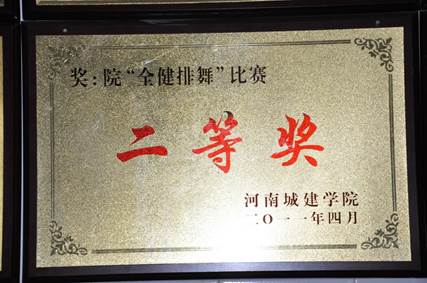 奖：院“全健排舞”比赛
二等奖
河南城建学院
二〇一一年四月